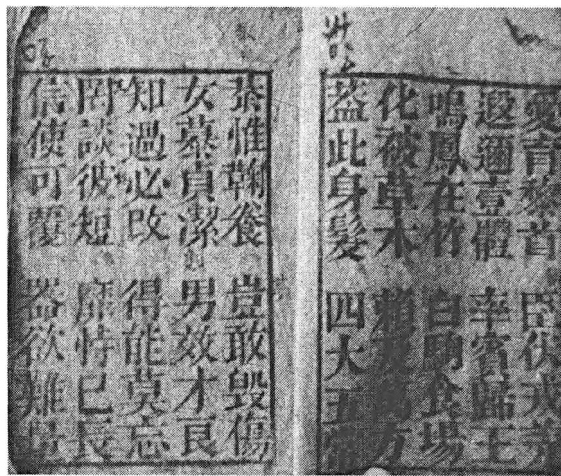 愛育黎首 臣伏戎羌
遐邇壹體 率賓歸王
鳴鳳在竹 白駒食場
化被草木 賴及萬方
葢此身髮 四大五常
恭惟鞠養 豈敢毀傷
女慕貞潔 男效才良
知過必改 得能莫忘
罔談彼短 靡恃己長
信使可覆 器欲難量